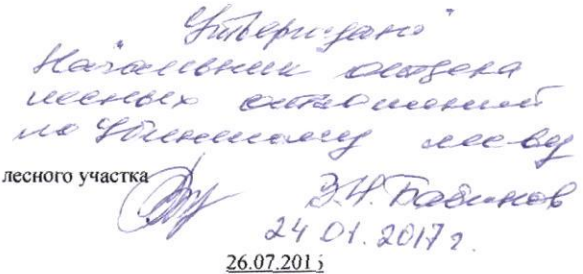 "Утверждаю"
Начальник отдела
лесных отношений
по Убинскому лес-ву
лесного участка
В.Н. Бабинов
24 01. 2017 г.
26.07.201